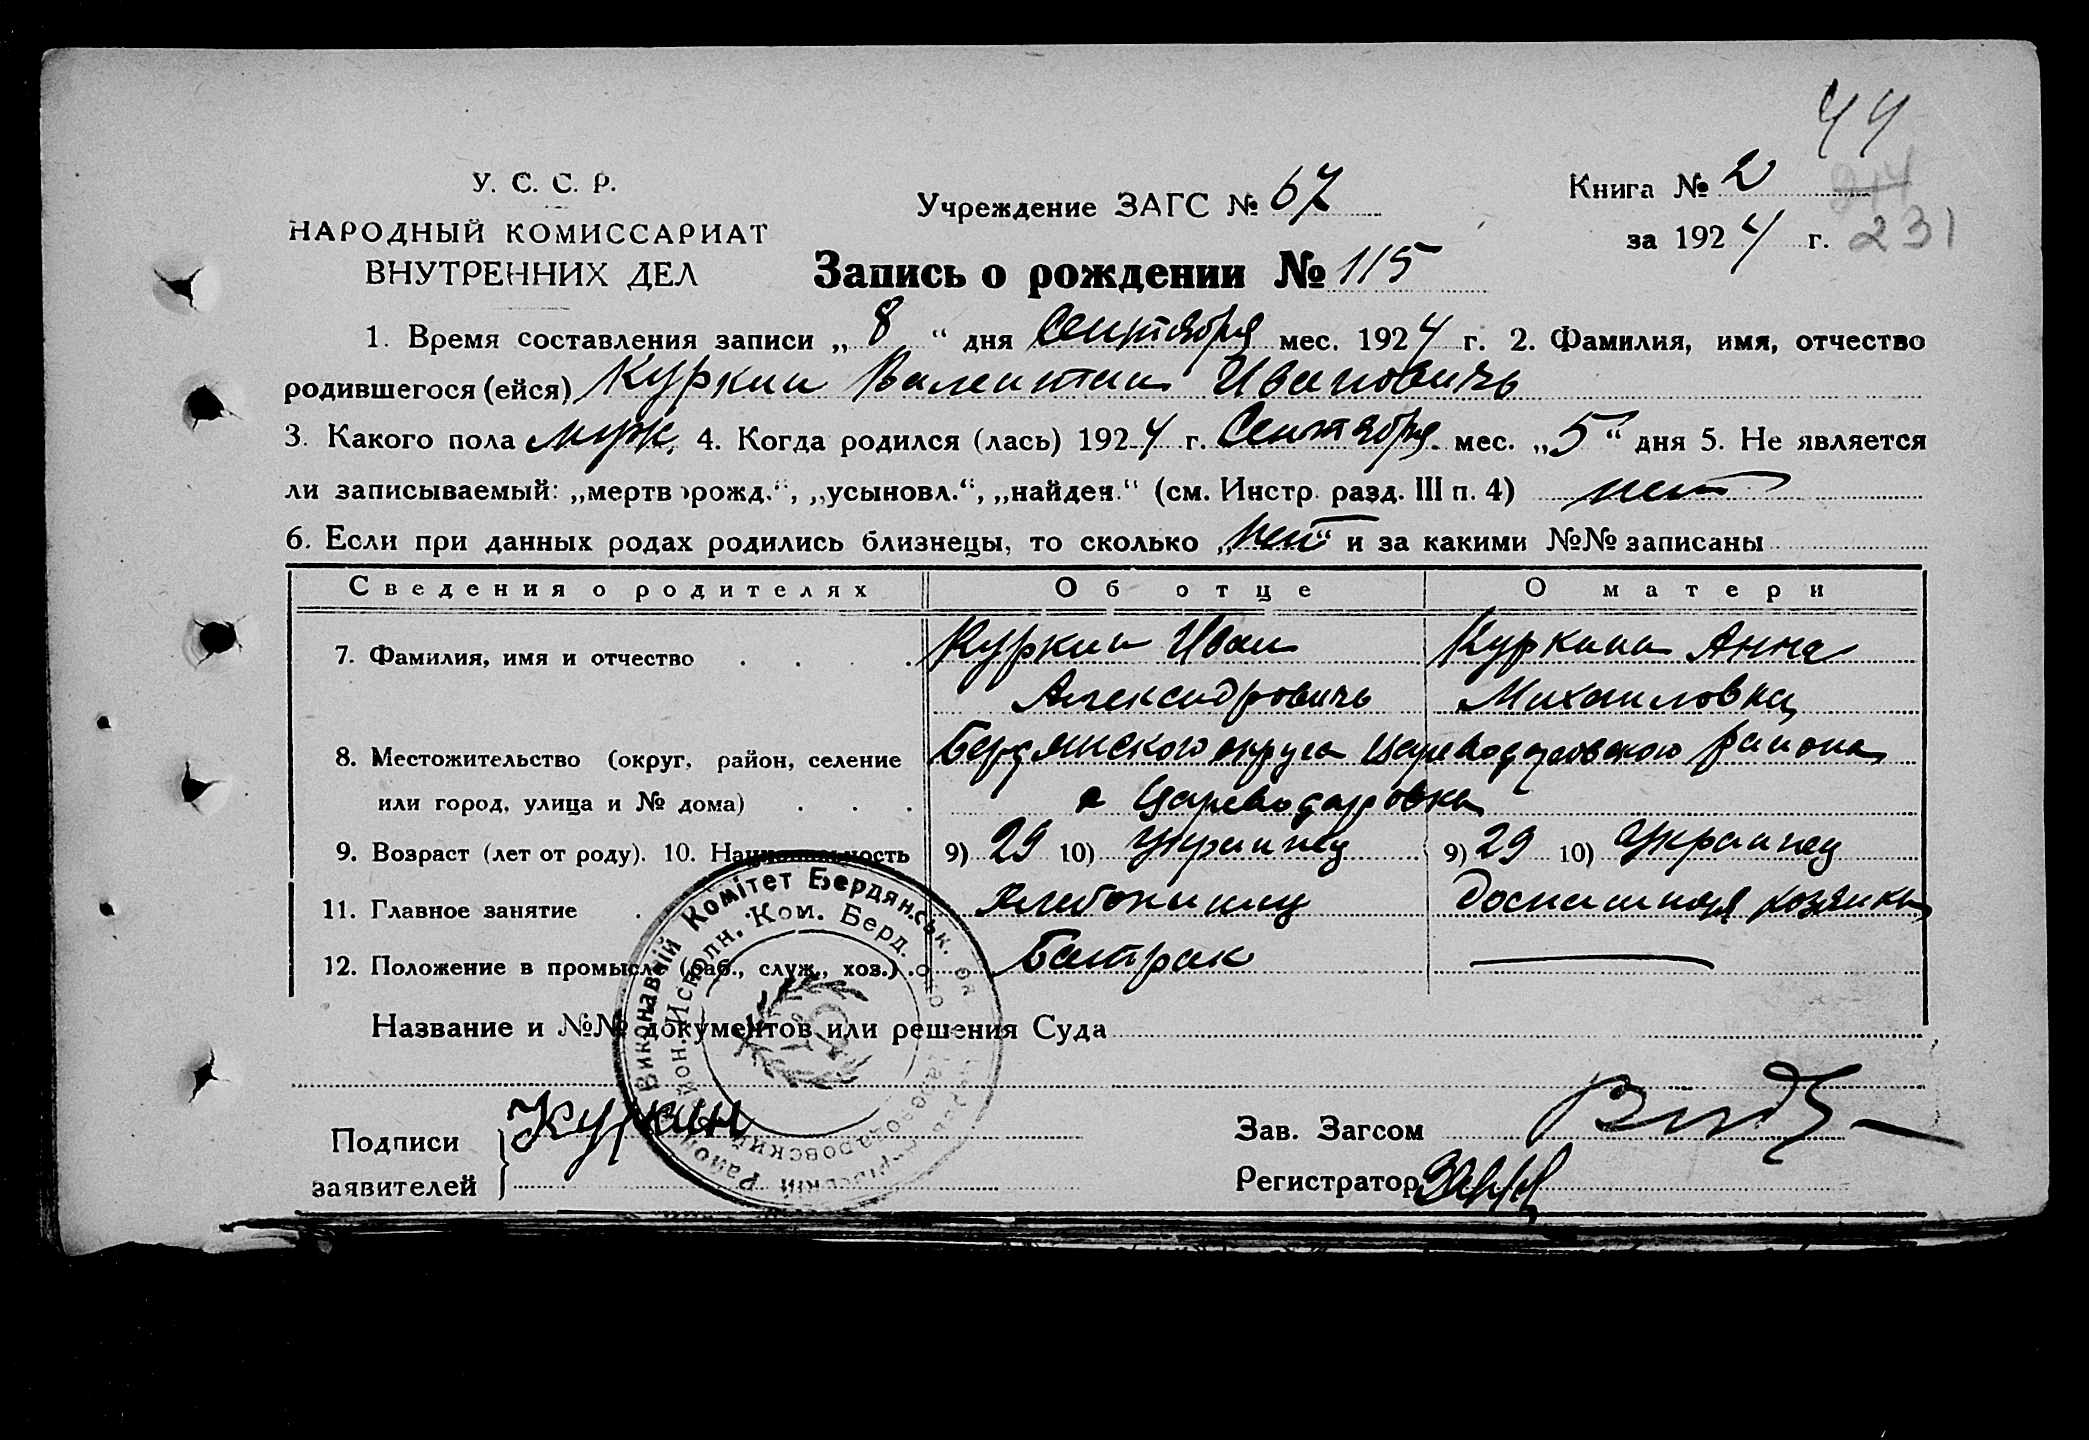 44
У. С. С. Р.
НАРОДНЫЙ КОМИССАРИАТ
ВНУТРЕННИХ ДЕЛ
Учреждение ЗАГС № 67
Книга № 2
за 1924 г. 231
Запись о рождении № 115
1. Время составления записи „8“ дня Сентября мес. 1924 г. 2. Фамилия, имя, отчество
родившегося (ейся) Куркин Валентин Ивановичь
3. Какого пола муж. 4. Когда родился (лась) 1924 г. Сентября мес. „5“ дня 5. Не является
ли записываемый: „мертворожд.“, „усыновл.“, „найден.“ (см. Инстр. разд. III п. 4) нет
6. Если при данных родах родились близнецы, то сколько „нет“ и за какими №№ записаны
Сведения о родителях Об отце О матери
7. Фамилия, имя и отчество . . . . Куркин Иван Куркина Анна
Александровичь Михаиловна
8. Местожительство (округ, район, селение Бердянского округа Цареводаровского района
или город, улица и № дома) . . . с Цареводаровка
9. Возраст (лет от роду). 10. Национальность 9) 29 10) Украинец 9) 29 10) Украинец
11. Главное занятие . Домашняя хозяйка
12. Положение в промысле (раб., служ., хоз.) . Батрак
Название и №№ документов или решения Суда
Виконавчій Комітет Бердянськ. ок
Исполн. Ком. Берд. о
Подписи Куркин
заявителей
Зав. Загсом
Регистратор